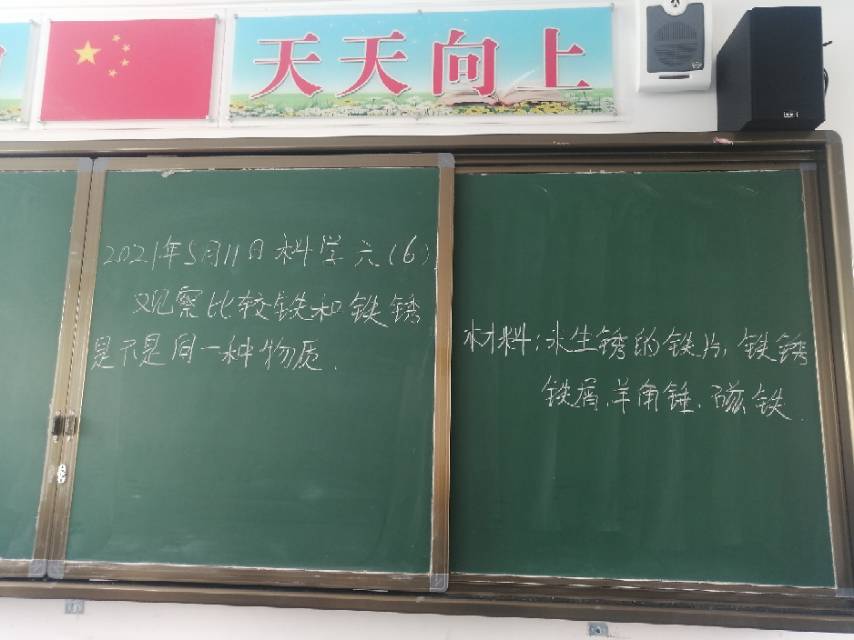 天天向上
2021年5月11日 科学 六(6)
观察比较铁和铁锈
是不是同一种物质.
材料:未生锈的铁片、铁锈
铁屑、羊角锤、磁铁.